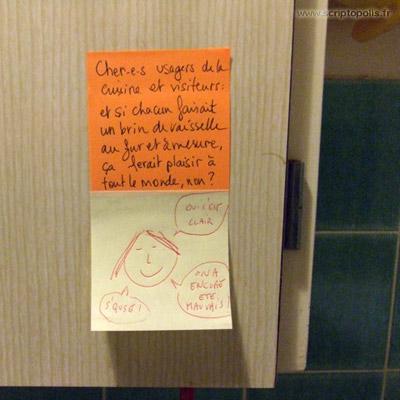 www.scriptopolis.fr
Cher-e-s usagers de la
cuisine et visiteurs:
et si chacun faisait
un brin de vaisselle
au fur et à mesure,
ça ferait plaisir à
tout le monde, non?
OUI C'EST
CLAIR
ON A
ENCORE
ÉTÉ
MAUVAIS!
S'CUSE!